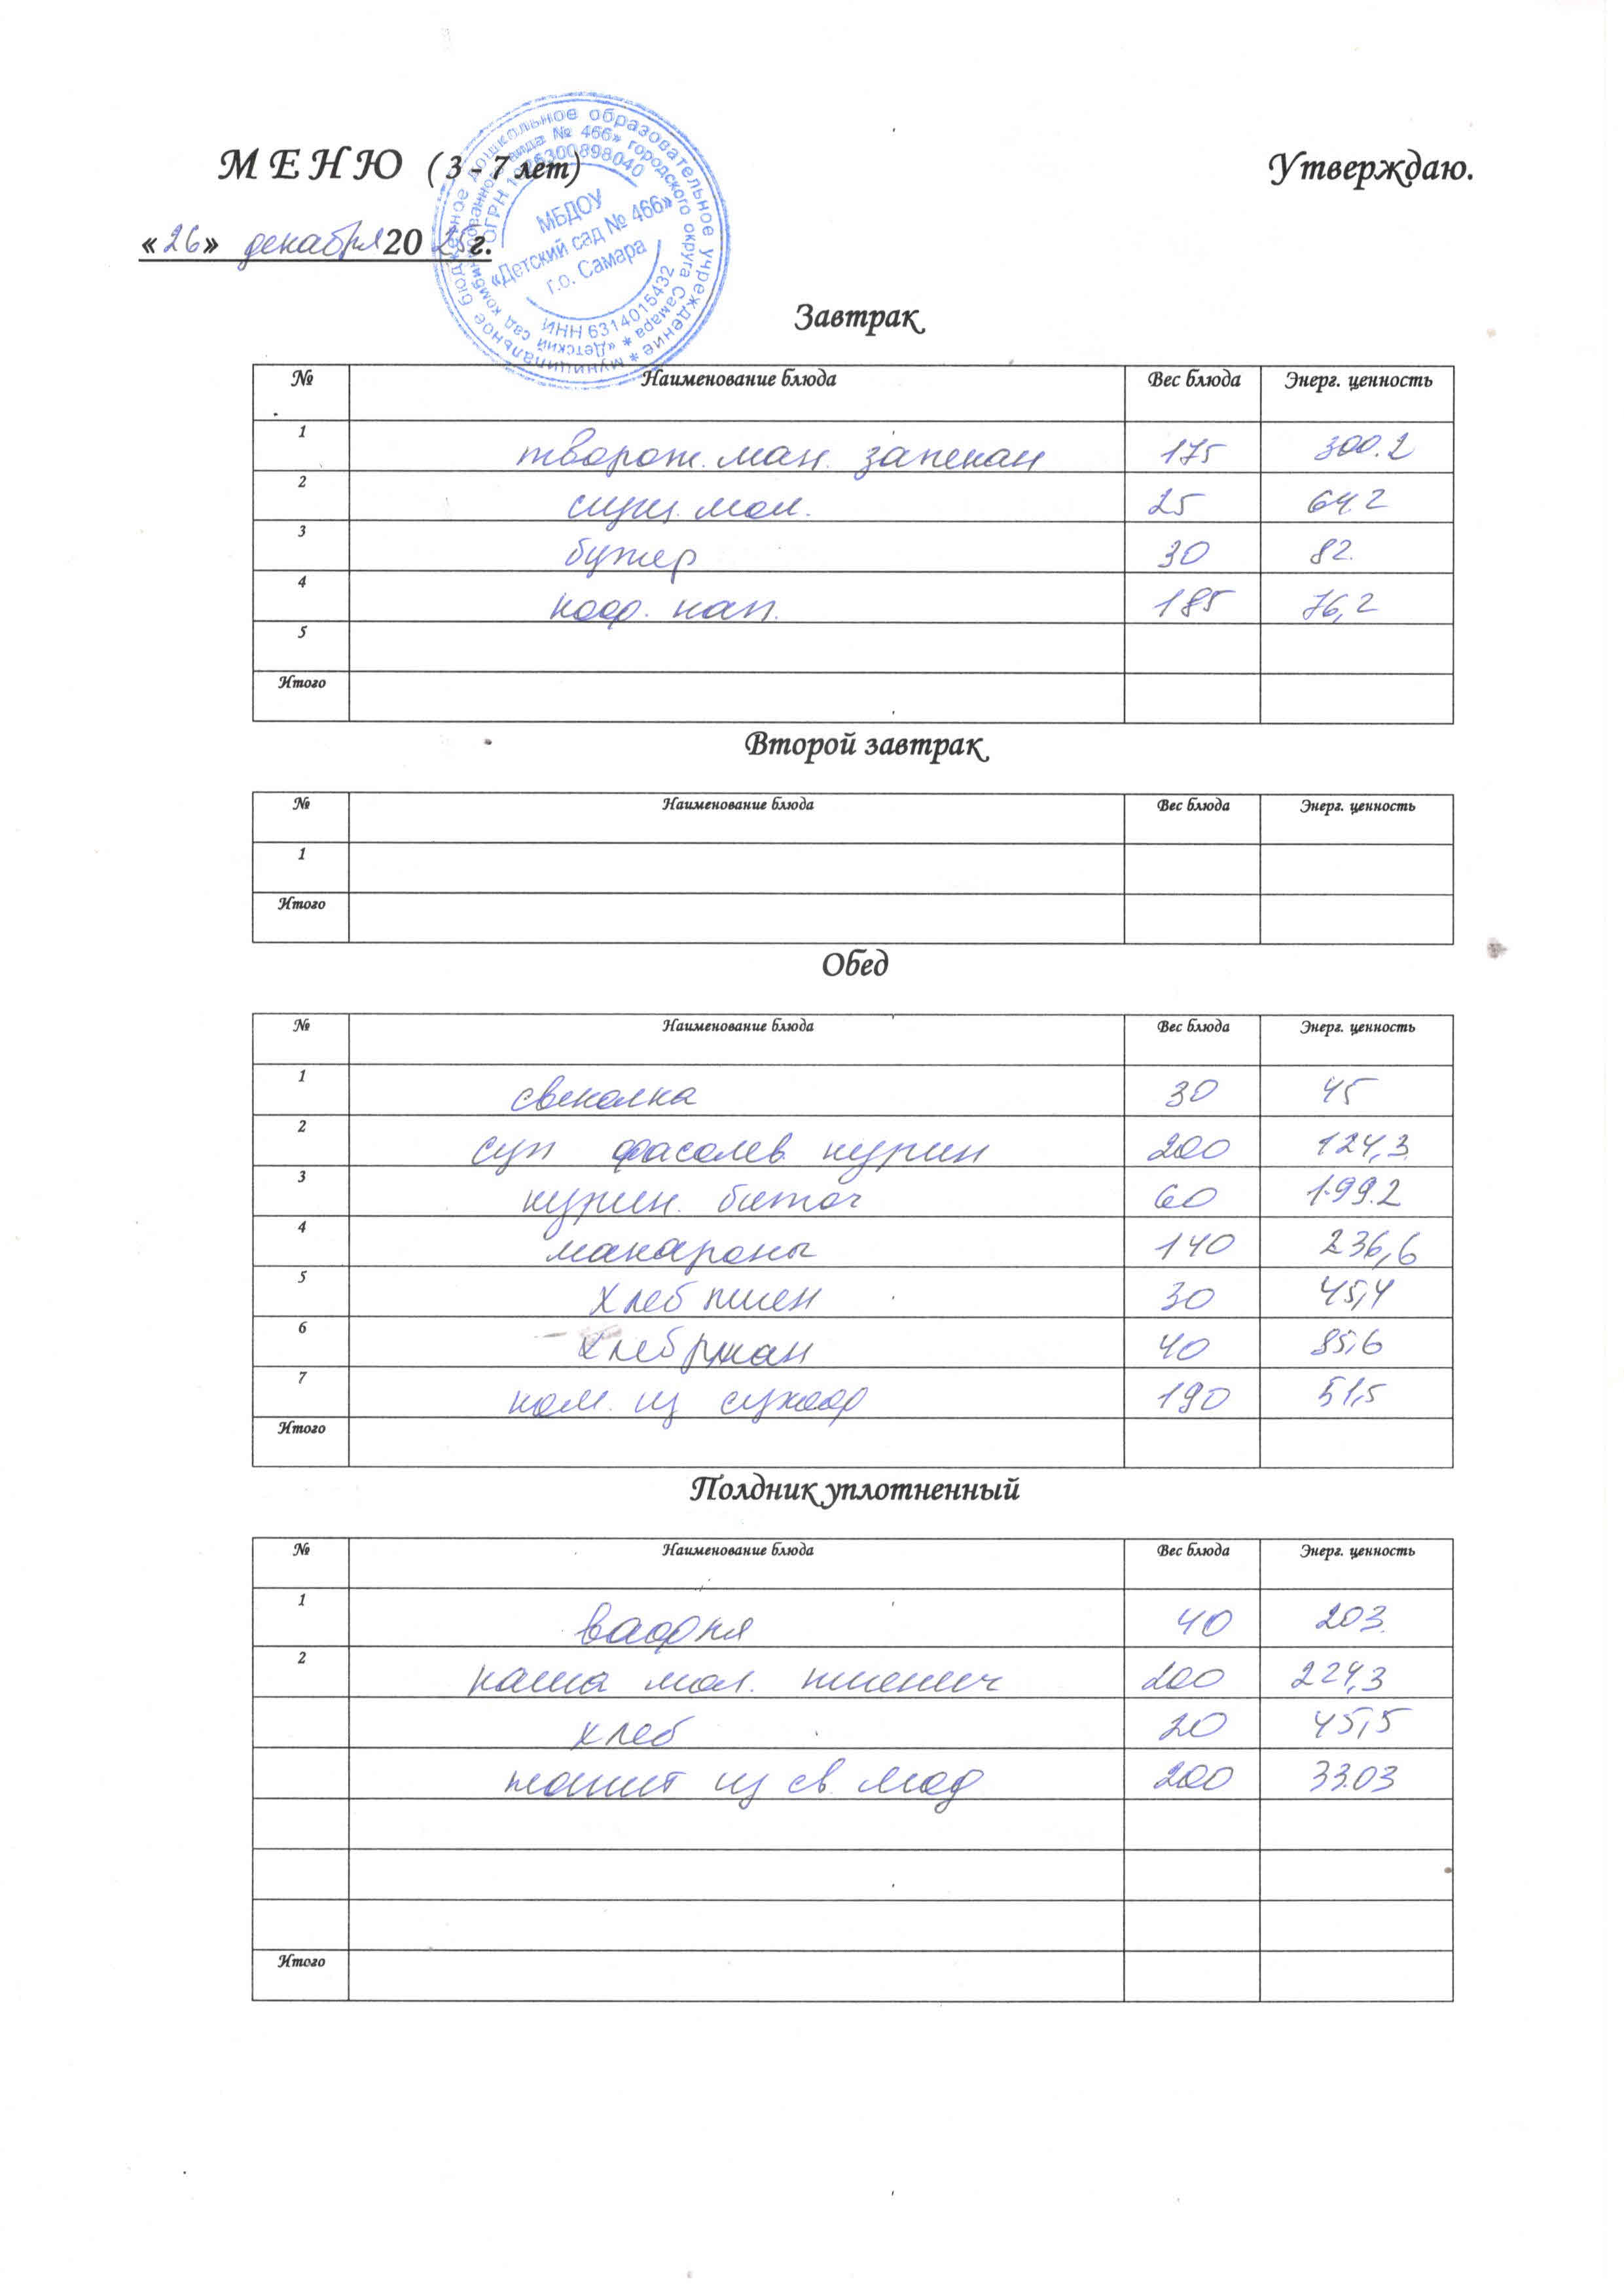 М Е Н Ю ( 3 - 7 лет) Утверждаю.
« 26 » декабря 20 25 г.
муниципальное бюджетное дошкольное образовательное учреждение *
«Детский сад комбинированного вида № 466» городского округа Самара *
ОГРН 300898040
МБДОУ
«Детский сад № 466»
г.о. Самара
ИНН 6314015432
Завтрак
№ Наименование блюда Вес блюда Энерг. ценность
1 творож. ман. запекан 175 300.2
2 сгущ. мол. 25 64.2
3 бутер 30 82.
4 коф. нап. 185 76,2
5
Итого
Второй завтрак
№ Наименование блюда Вес блюда Энерг. ценность
1
Итого
Обед
№ Наименование блюда Вес блюда Энерг. ценность
1 свеколка 30 45
2 суп фасолев курин 200 124,3
3 курин. биточ 60 199.2
4 макароны 140 236,6
5 хлеб пшен 30 45,4
6 хлеб ржан 40 85,6
7 ком. из сухоф 190 51,5
Итого
Полдник уплотненный
№ Наименование блюда Вес блюда Энерг. ценность
1 вафля 40 203.
2 каша мол. пшенич 200 224,3
хлеб 20 45,5
из св 200 33.03
Итого